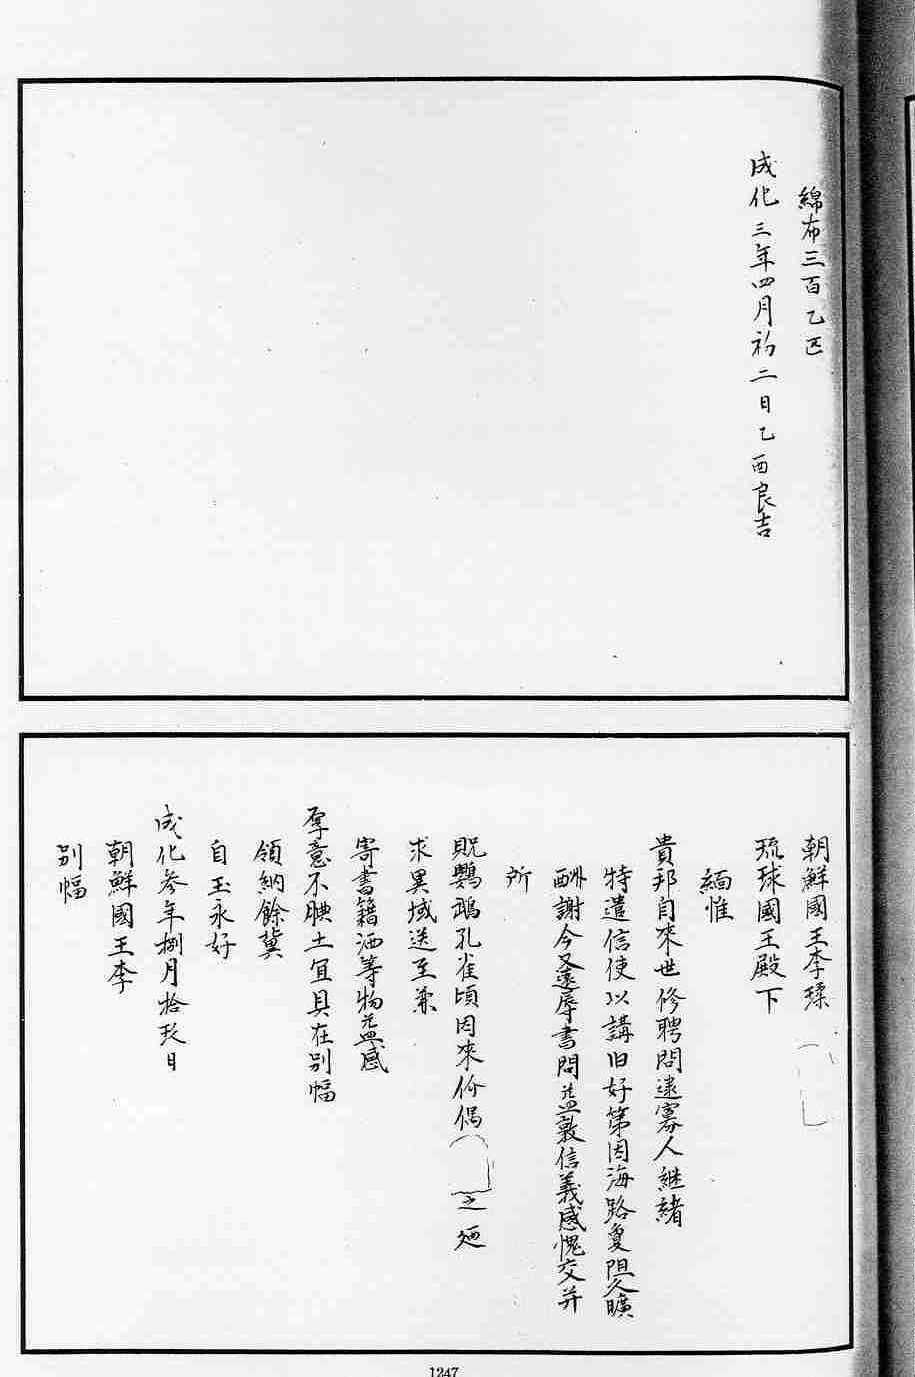 綿布三百乙匹
成化三年四月初二日乙酉良吉
朝鮮國王李瑈
琉球國王殿下
緬惟
貴邦自來世修聘問逮寡人継緒
特遣信使以講旧好第因海路敻阻久曠
酬謝今又遠辱書問益敦信義感愧交并
所
貺鸚鵡孔雀頃因來价偶
之
求異域送至兼
寄書籍洒等物益感
厚意不腆土宜具在別幅
領納餘冀
自玉永好
成化參年捌月拾玖日
朝鮮國王李
別幅
1247